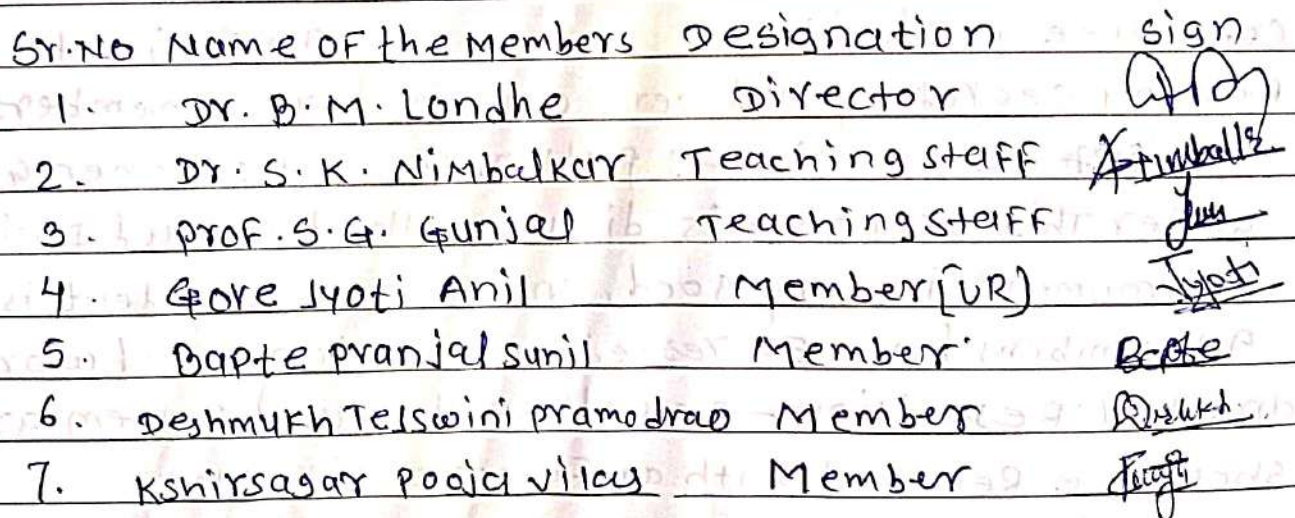 Sr.No Name OF the Members Designation sign.
1. Dr. B. M. Londhe Director
2. Dr. S. K. Nimbalkar Teaching staff
3. Prof. S. G. Gunjal Teaching staff
4. Gore Jyoti Anil Member [UR] Jyoti
5. Bapte pranjal sunil Member Bapte
6. Deshmukh Tejswini pramodrao Member
7. Kshirsagar Pooja vilas Member